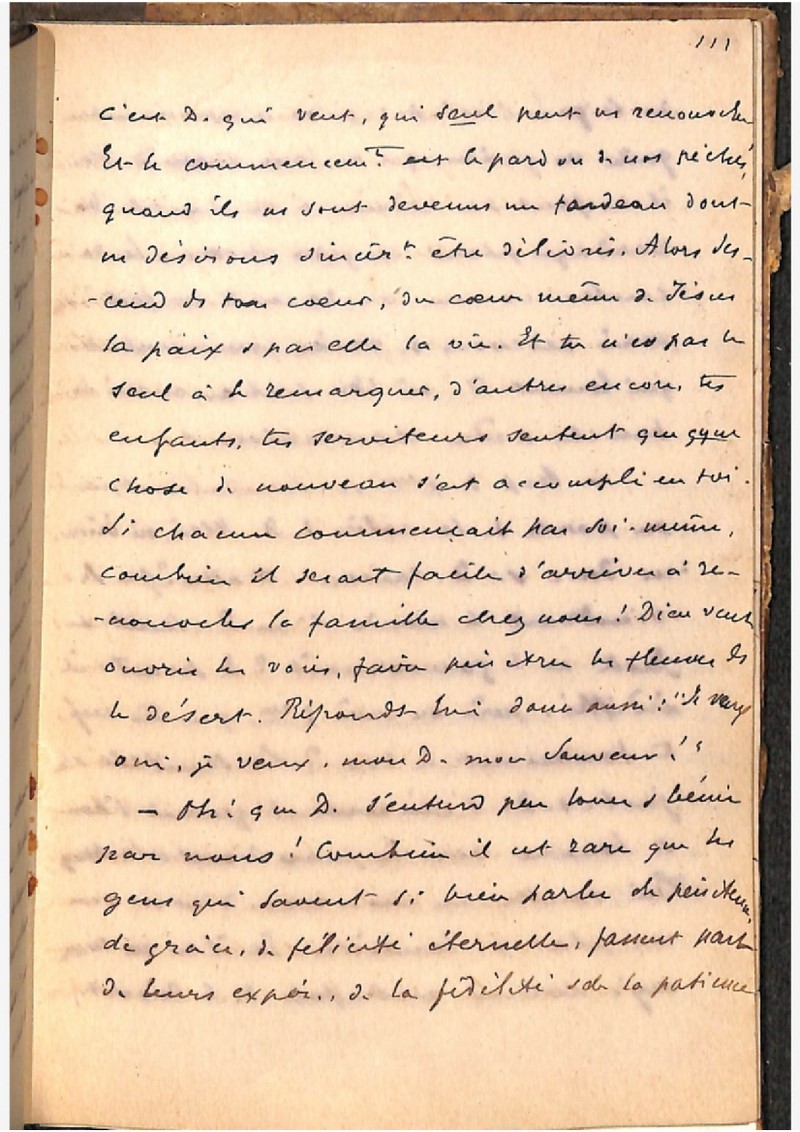 111
c'est D. qui veut, qui seul peut ns renouveler
Et le commencemt est le pardon de nos péchés,
quand ils ns sont devenus un fardeau dont
ns désirons sincèrt être délivrés. Alors des-
-cend ds ton coeur, du coeur même de Jésus
la paix & par elle la vie. Et tu n'es pas le
seul à le remarquer, d'autres encore, tes
enfants, tes serviteurs sentent que qque
chose de nouveau s'est accompli en toi.
Si chacun commençait par soi-même,
combien il serait facile d'arriver à re-
-nouveler la famille chez nous! Dieu veut
ouvrir les voies, faire les fleuves ds
le désert. Réponds lui donc aussi: "Je veux
oui, je veux, mon D. mon Sauveur!"
— Oh! que D. s'entend peu louer & bénir
par nous! Combien il est rare que les
gens qui savent si bien parler de pénitence,
de grâce, de félicité éternelle, fassent part
de leurs expér., de la fidélité & de la patience